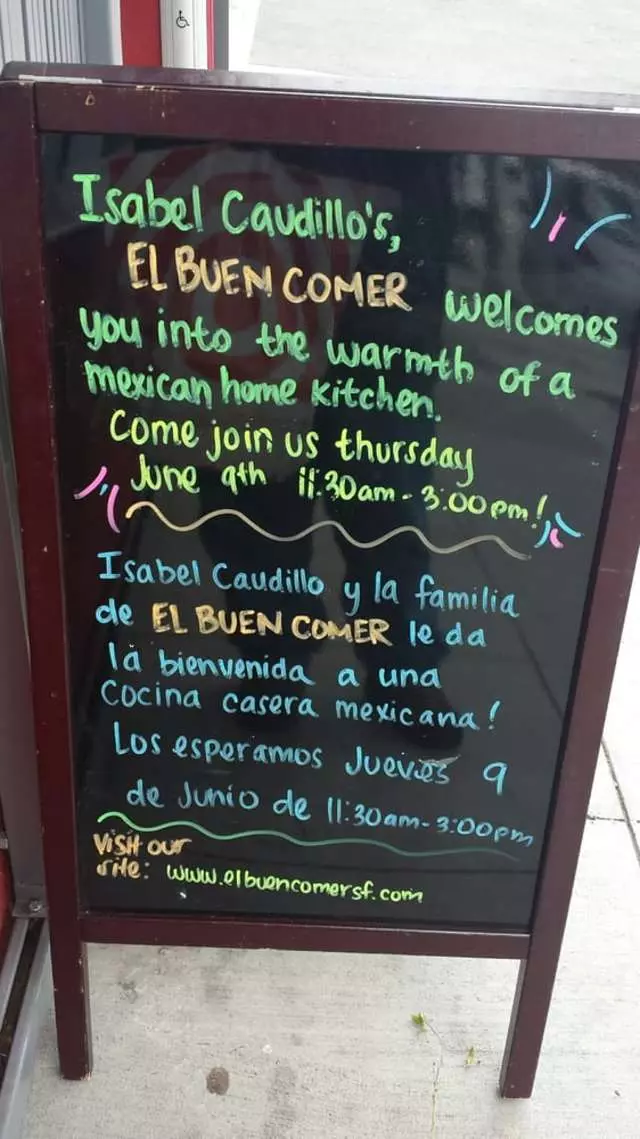 Isabel Caudillo's,
EL BUEN COMER welcomes
you into the warmth of a
mexican home kitchen.
Come join us thursday
June 9th 11:30am - 3:00pm!
Isabel Caudillo y la familia
de EL BUEN COMER le da
la bienvenida a una
Cocina casera mexicana!
Los esperamos Jueves 9
de Junio de 11:30am - 3:00pm
Visit our
site: www.elbuencomersf.com